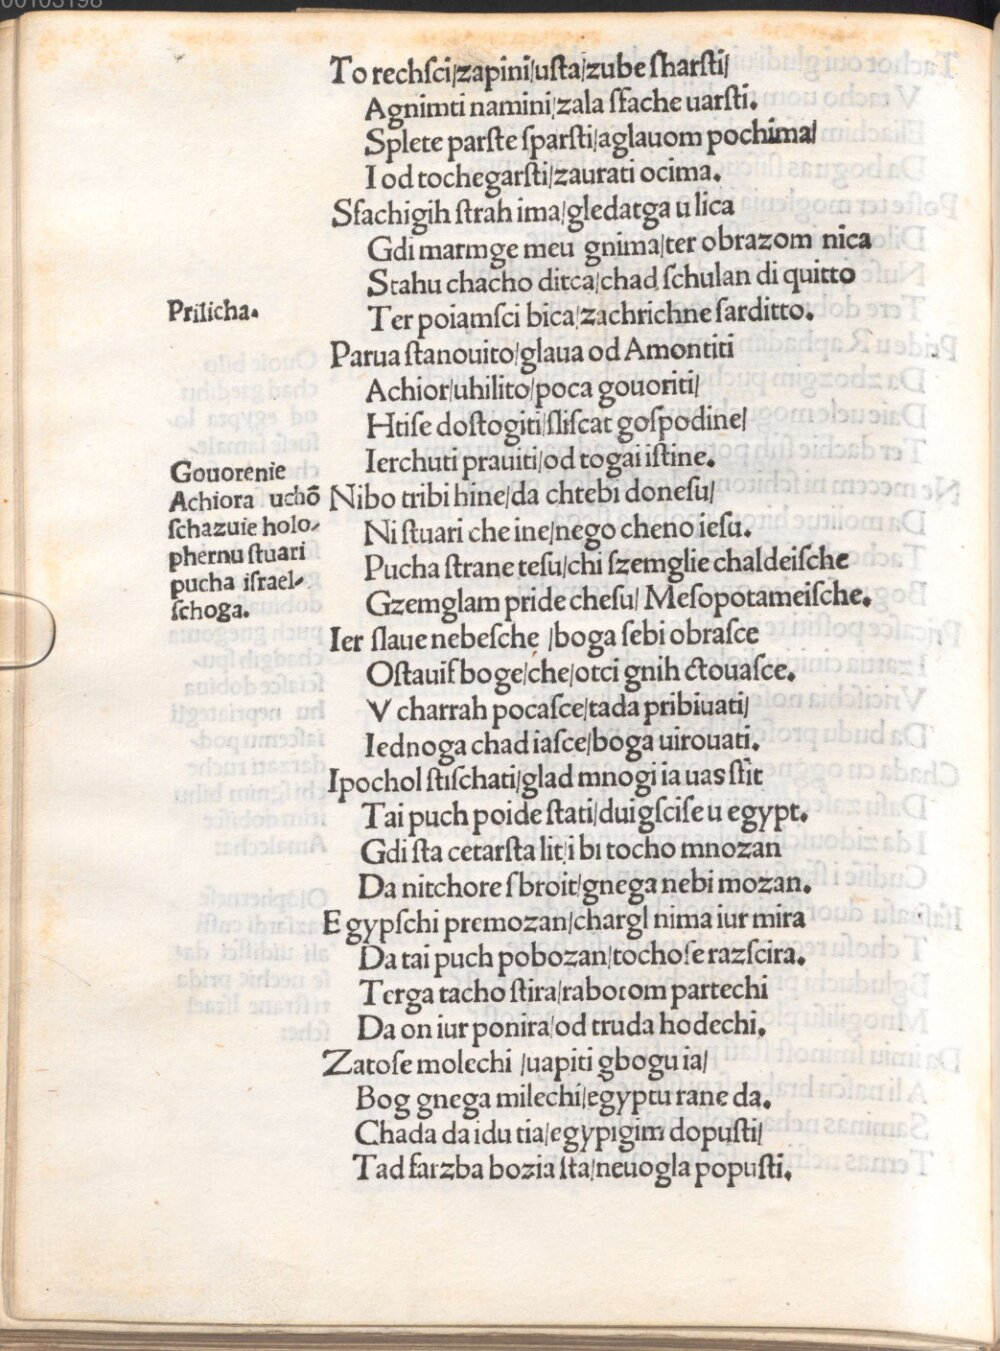 To rechſci/zapini/uſta/zube ſharſti/
Agnimti namini/zala ſfache uarſti.
Splete parſte ſparſti/aglauom pochima/
I od tochegarſti/zaurati ocima.
Sfachigih ſtrah ima/gledatga u lica
Gdi marmge meu gnima/ter obrazom nica
Stahu chacho ditca/chad ſchulan di quitto
Prilicha.
Ter poiamſci bica/zachrichne ſarditto.
Parua ſtanouito/glaua od Amontiti
Achior/uhilito/poca gouoriti/
Htiſe doſtogiti/ſliſcat goſpodine/
Ierchuti prauiti/od togai iſtine.
Gouorenie
Achiora uchō
ſchazuie holo-
phernu ſtuari
pucha iſrael-
ſchoga.
Nibo tribi hine/da chtebi doneſu/
Ni ſtuari che ine/nego cheno ieſu.
Pucha ſtrane teſu/chi ſzemglie chaldeiſche
Gzemglam pride cheſu/ Meſopotameiſche.
Ier ſlaue nebeſche /boga ſebi obraſce
Oſtauiſ boge/che/otci gnih ctouaſce.
V charrah pocaſce/tada pribiuati/
Iednoga chad iaſce/boga uirouati.
Ipochol ſtiſchati/glad mnogi ia uas ſfit
Tai puch poide ſtati/duigſciſe u egypt.
Gdi ſta cetarſta lit/i bi tocho mnozan
Da nitchore ſbroit/gnega nebi mozan.
Egypſchi premozan/chargl nima iur mira
Da tai puch pobozan/tochoſe razſcira.
Terga tacho ſtira/rabotom partechi
Da on iur ponira/od truda hodechi.
Zatoſe molechi /uapiti gbogu ia/
Bog gnega milechi/egyptu rane da.
Chada da idu tia/egypigim dopuſti/
Tad farzba bozia ſta/neuogla popuſti.